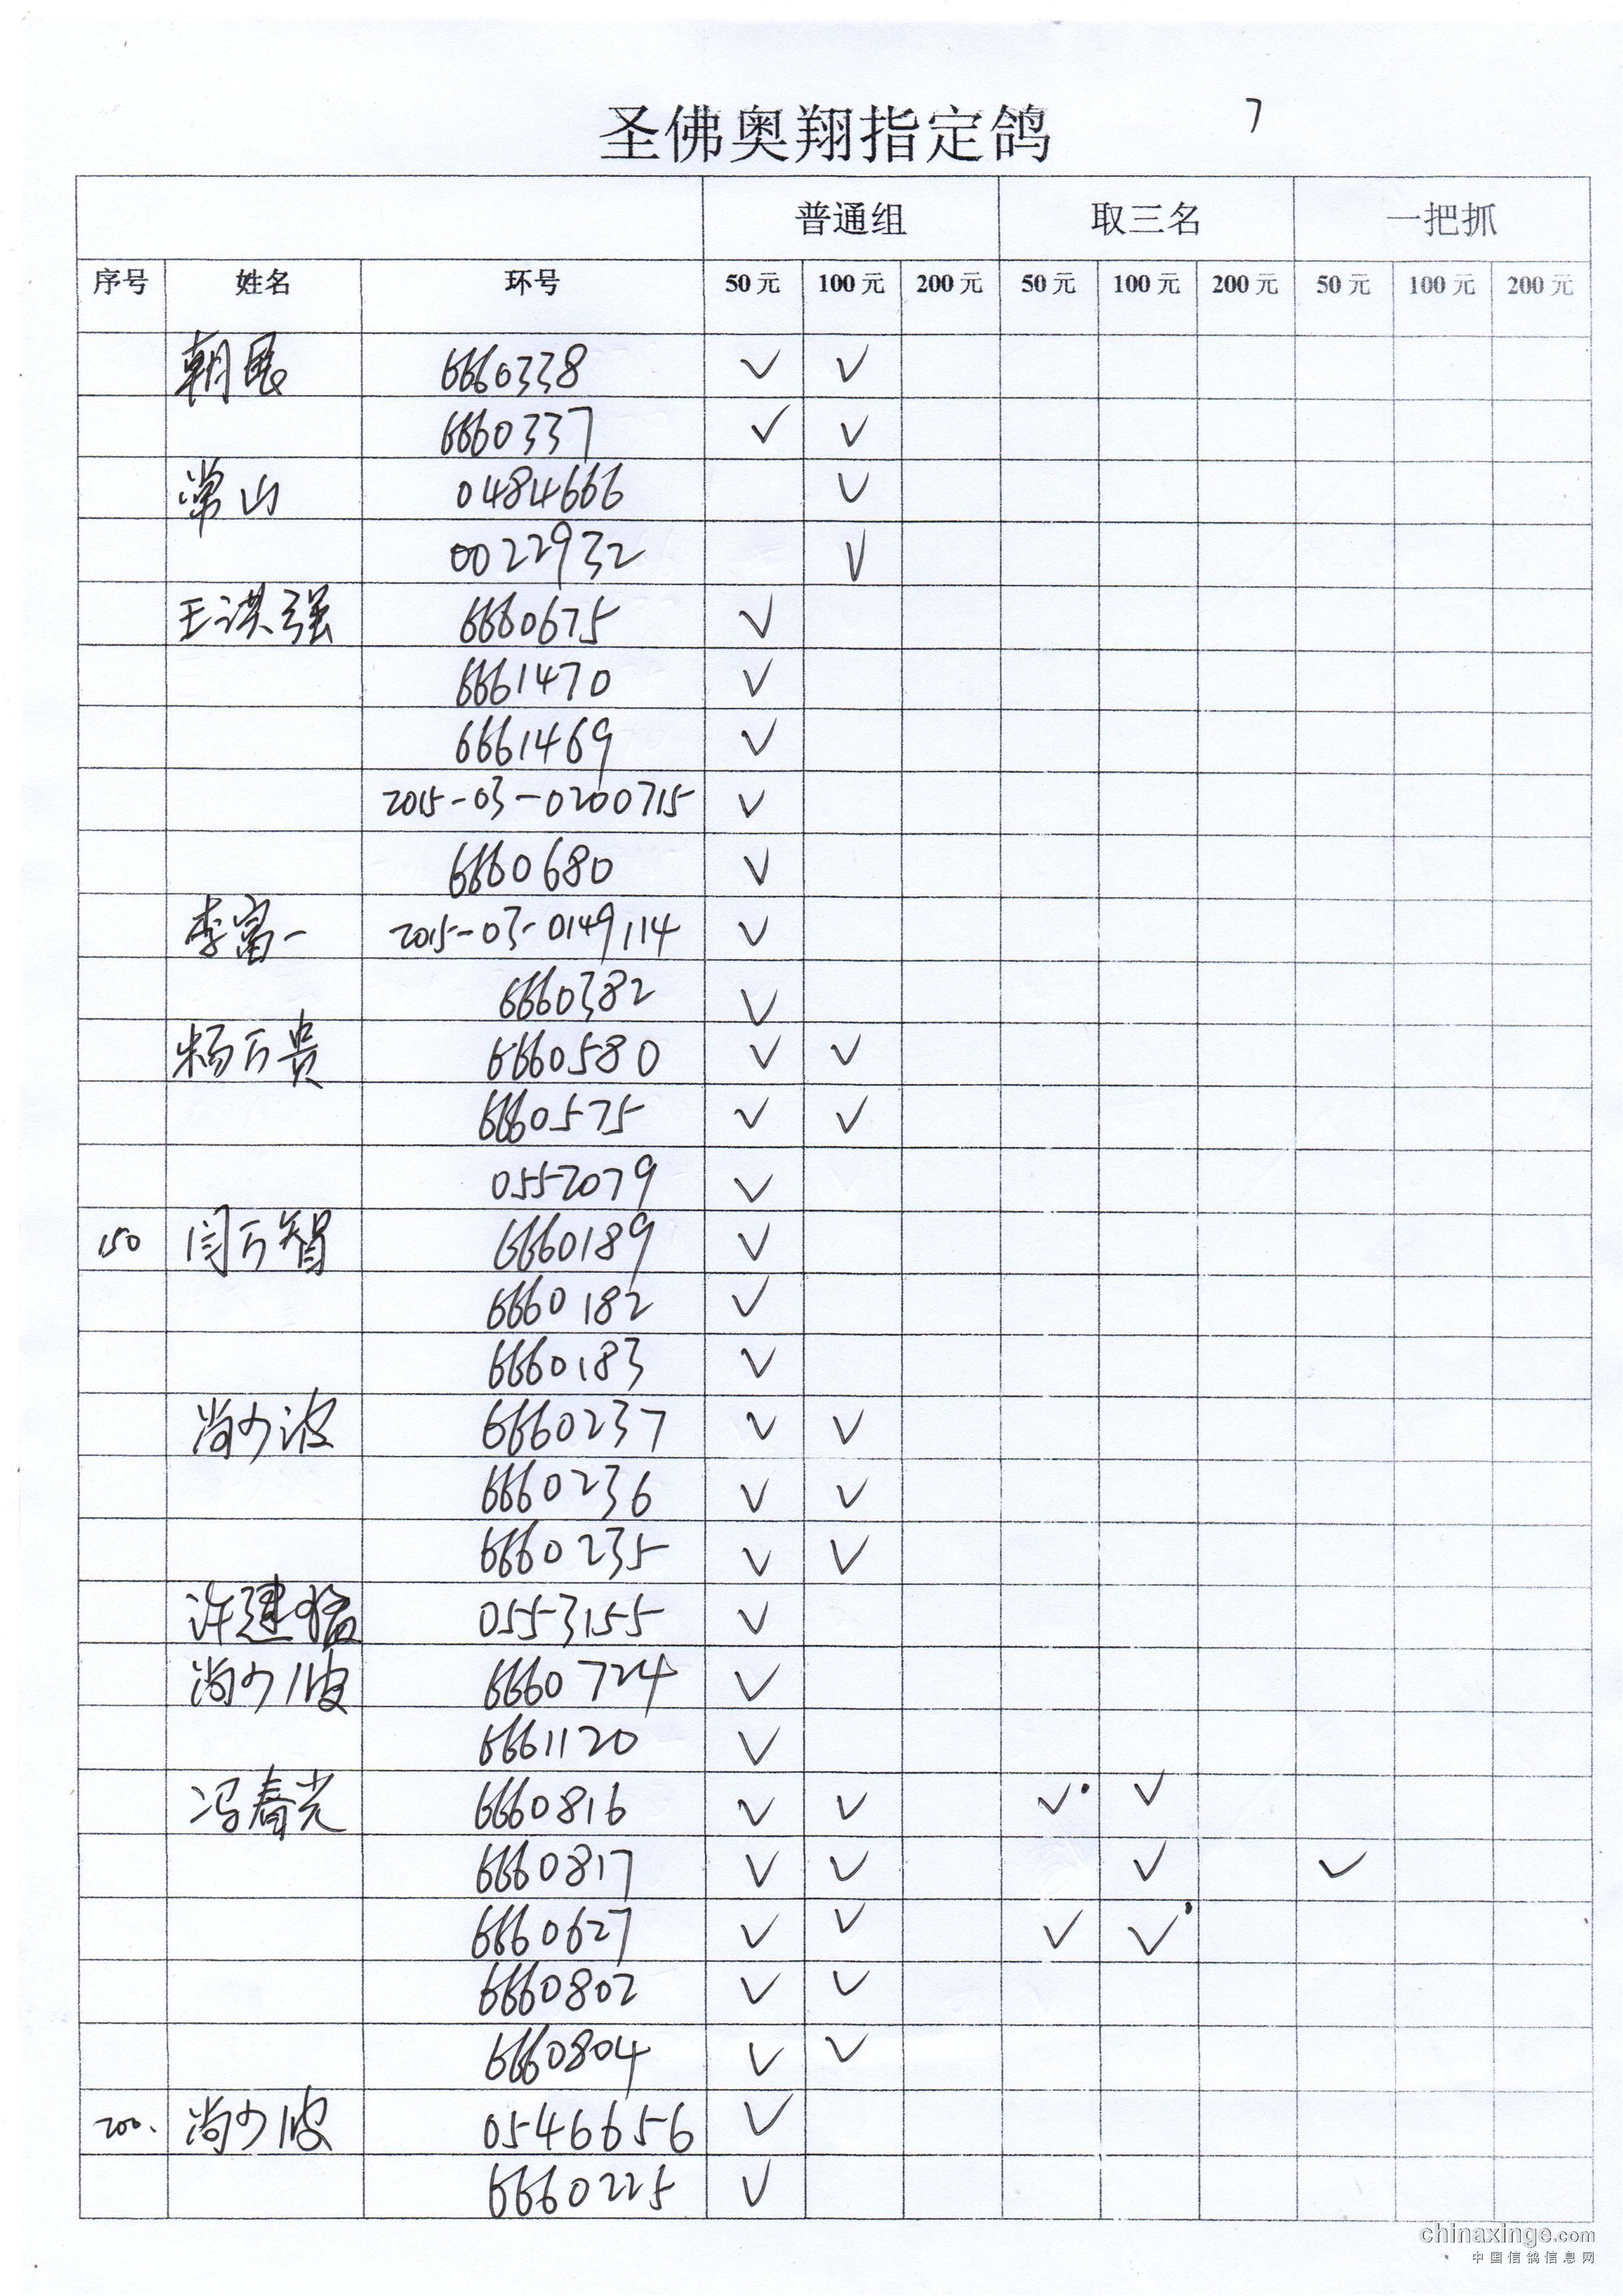 圣佛奥翔指定鸽 7
普通组 取三名 一把抓
序号 姓名 环号 50元 100元 200元 50元 100元 200元 50元 100元 200元
朝晟 6660338 √ √
6660337 √ √
常山 0484666 √
0022932 √
王洪强 6660675 √
6661470 √
6661469 √
2015-03-0200715 √
6660680 √
李富一 2015-03-0149114 √
6660382 √
杨万贵 6660580 √ √
6660575 √ √
0552079 √
150 闫万智 6660189 √
6660182 √
6660183 √
尚少波 6660237 √ √
6660236 √ √
6660235 √ √
许建猛 0553155 √
尚少波 6660724 √
6661120 √
冯春光 6660816 √ √ √ √
6660817 √ √ √ √
6660627 √ √ √ √
6660802 √ √
6660804 √ √
200. 尚少波 0546656 √
6660225 √
chinaxinge.com
中国信鸽信息网